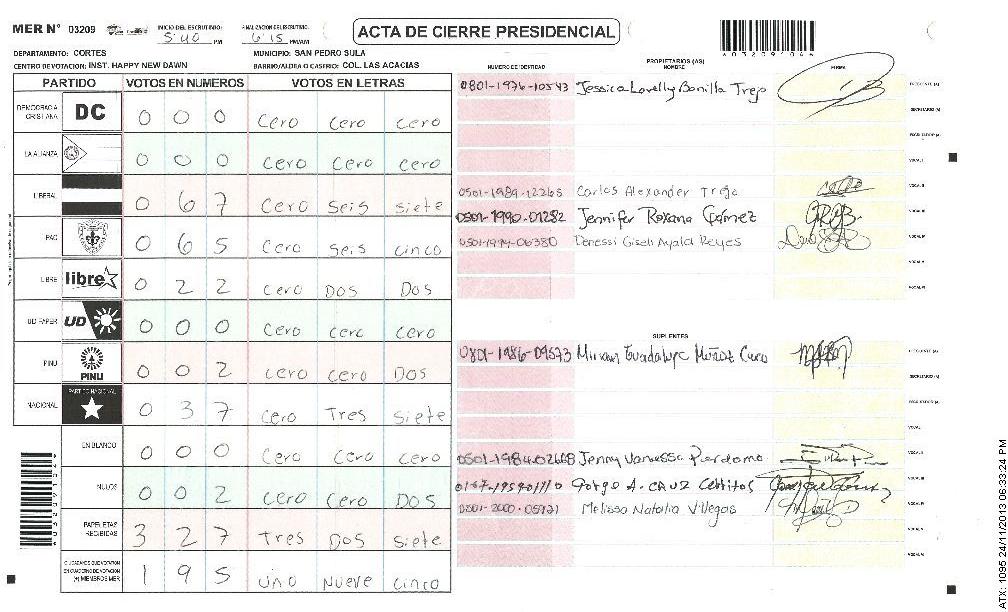 MER Nº 03209 INICIO DEL ESCRUTINIO: 5:40 PM FINALIZACION DEL ESCRUTINIO: 6:15 PM/AM
ACTA DE CIERRE PRESIDENCIAL
DEPARTAMENTO: CORTES MUNICIPIO: SAN PEDRO SULA
CENTRO DE VOTACION: INST. HAPPY NEW DAWN BARRIO/ALDEA O CASERIO: COL. LAS ACACIAS
PARTIDO VOTOS EN NUMEROS VOTOS EN LETRAS
DEMOCRACIA CRISTIANA DC 0 0 0 Cero Cero Cero
LA ALIANZA 0 0 0 Cero Cero Cero
LIBERAL 0 6 7 Cero Seis Siete
PAC 0 6 5 Cero Seis Cinco
LIBRE libre 0 2 2 Cero Dos Dos
UD FAPER UD 0 0 0 Cero Cero Cero
PINU PINU 0 0 2 Cero Cero Dos
NACIONAL PARTIDO NACIONAL 0 3 7 Cero Tres Siete
EN BLANCO 0 0 0 Cero Cero Cero
NULOS 0 0 2 Cero Cero Dos
PAPELETAS RECIBIDAS 3 2 7 Tres Dos Siete
CIUDADANOS QUE VOTARON EN CUADERNO DE VOTACION (+) MIEMBROS MER 1 9 5 Uno Nueve Cinco
NUMERO DE IDENTIDAD PROPIETARIOS (AS) NOMBRE FIRMA
0801-1976-10543 Jessica Lovelly Bonilla Trejo PRESIDENTE (A)
SECRETARIO (A)
ESCRUTADOR (A)
VOCAL I
0501-1989-12265 Carlos Alexander Trejo VOCAL II
0501-1990-01282 Jennifer Roxana Gomez VOCAL III
0501-1994-06380 Denessi Giseli Ayala Reyes VOCAL IV
VOCAL V
VOCAL VI
SUPLENTES
0801-1986-09573 Guadalupe Muñoz PRESIDENTE (A)
SECRETARIO (A)
ESCRUTADOR (A)
VOCAL I
0501-1984-02608 Jenny Vanessa Perdomo VOCAL II
A. CRUZ VOCAL III
0501-2000-05921 Melissa Natalia Villegas VOCAL IV
VOCAL V
VOCAL VI
ATX: 1095 24/11/2013 06:33:24 PM